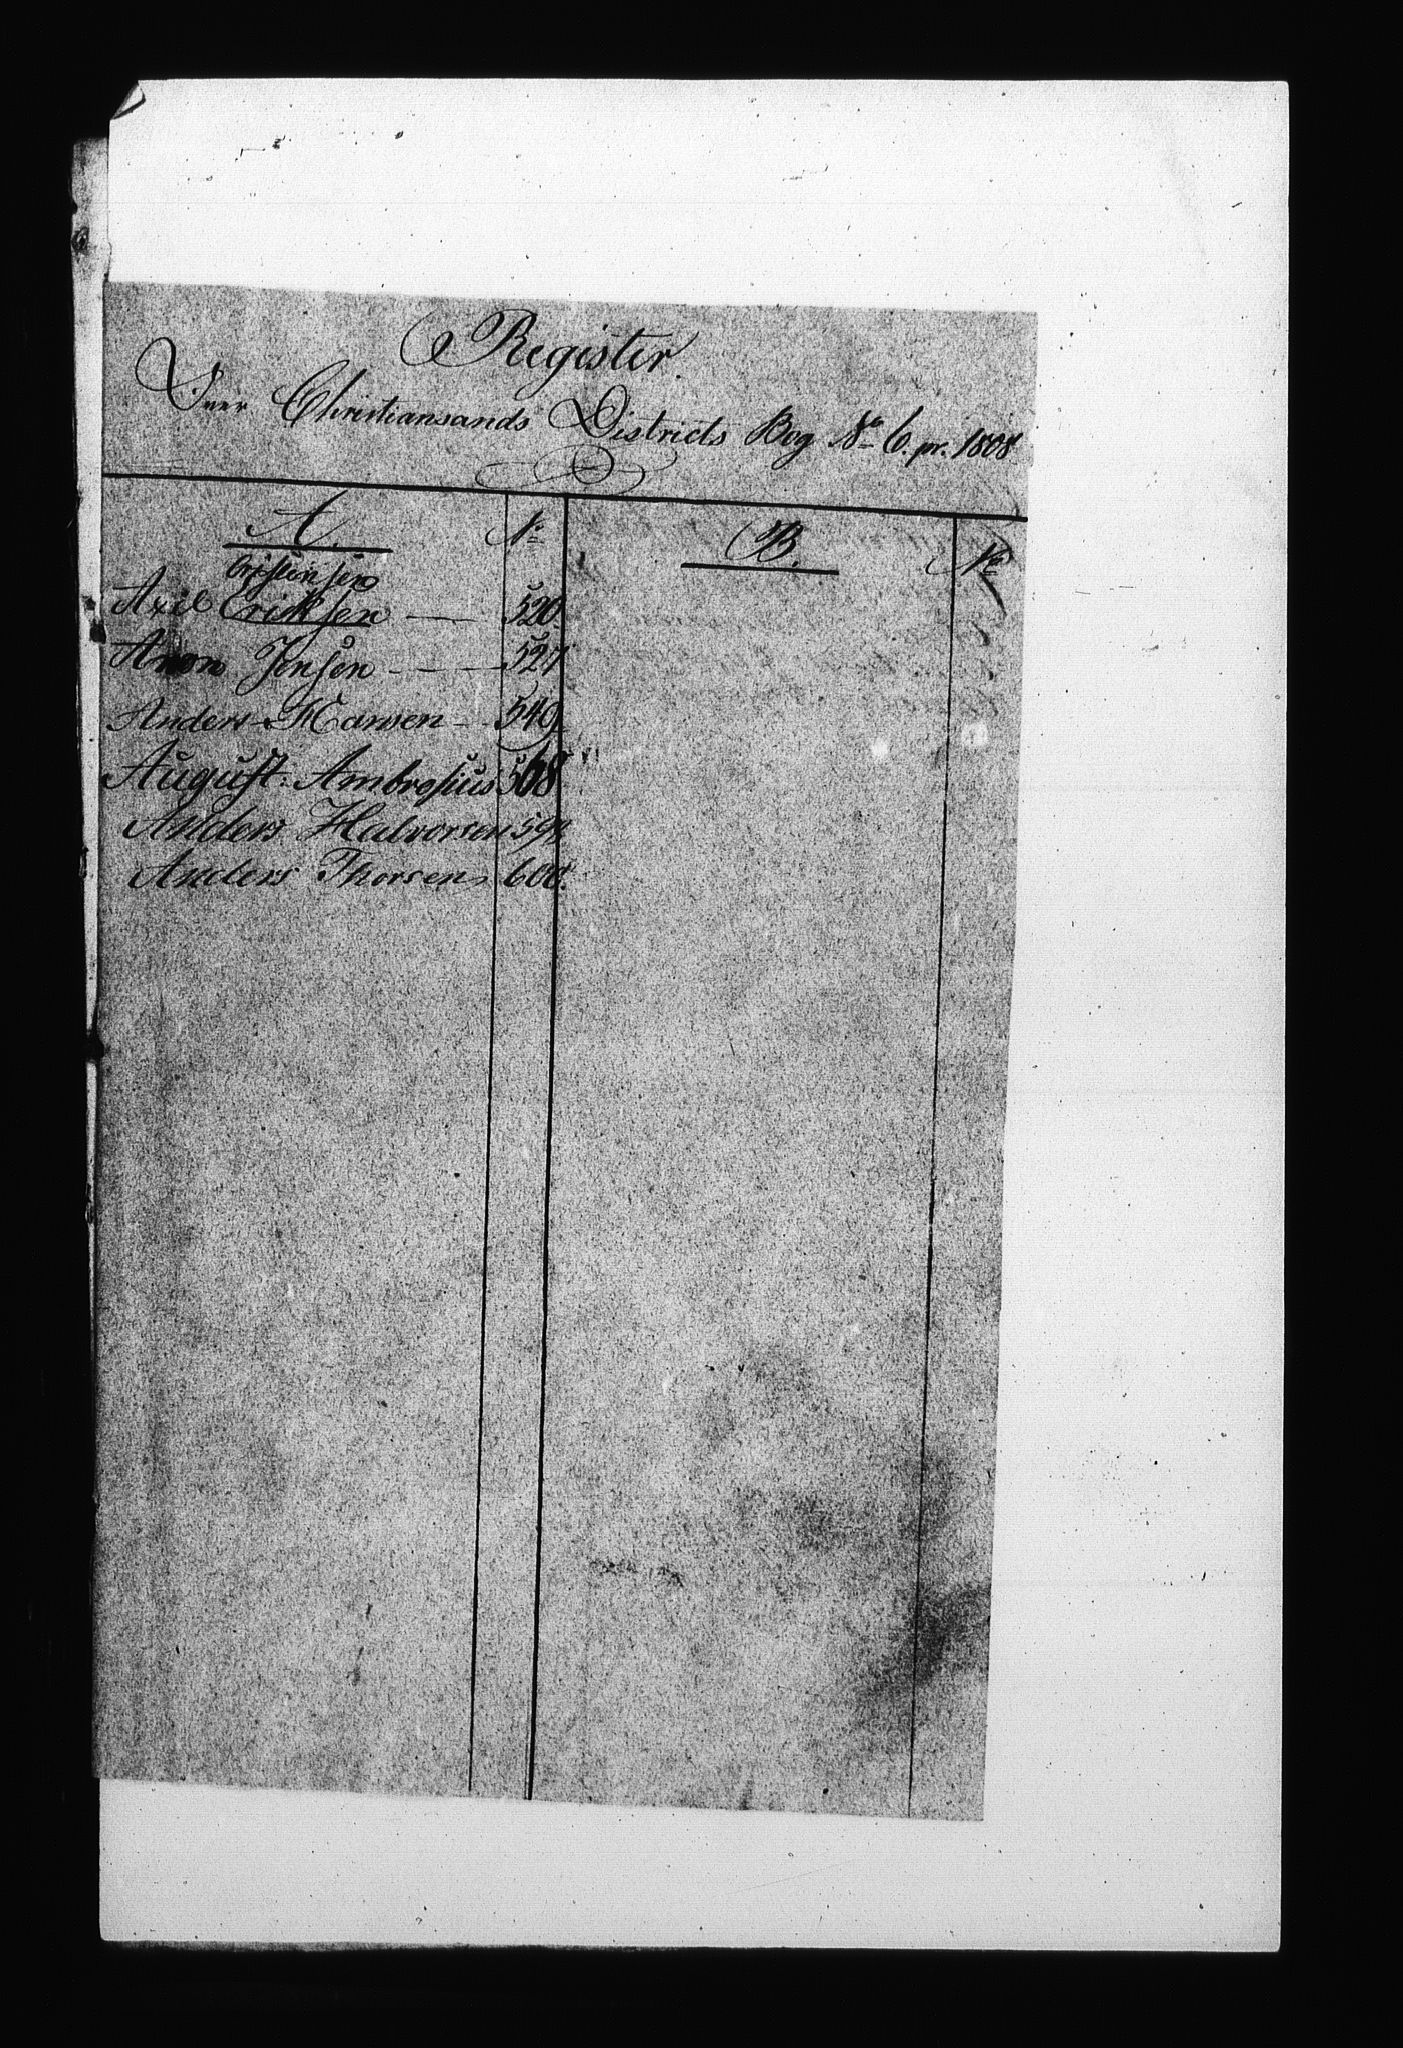 Register.
Over Christiansands Districts Bog No 6. pr. 1808
A No B. No
Cristensen
Axel Ericksen — 520.
Aron Jensen — 527
Anders Hansen — 549
August: Ambrosius 568
Anders Halvorsen 597
Anders Thorsen 600.